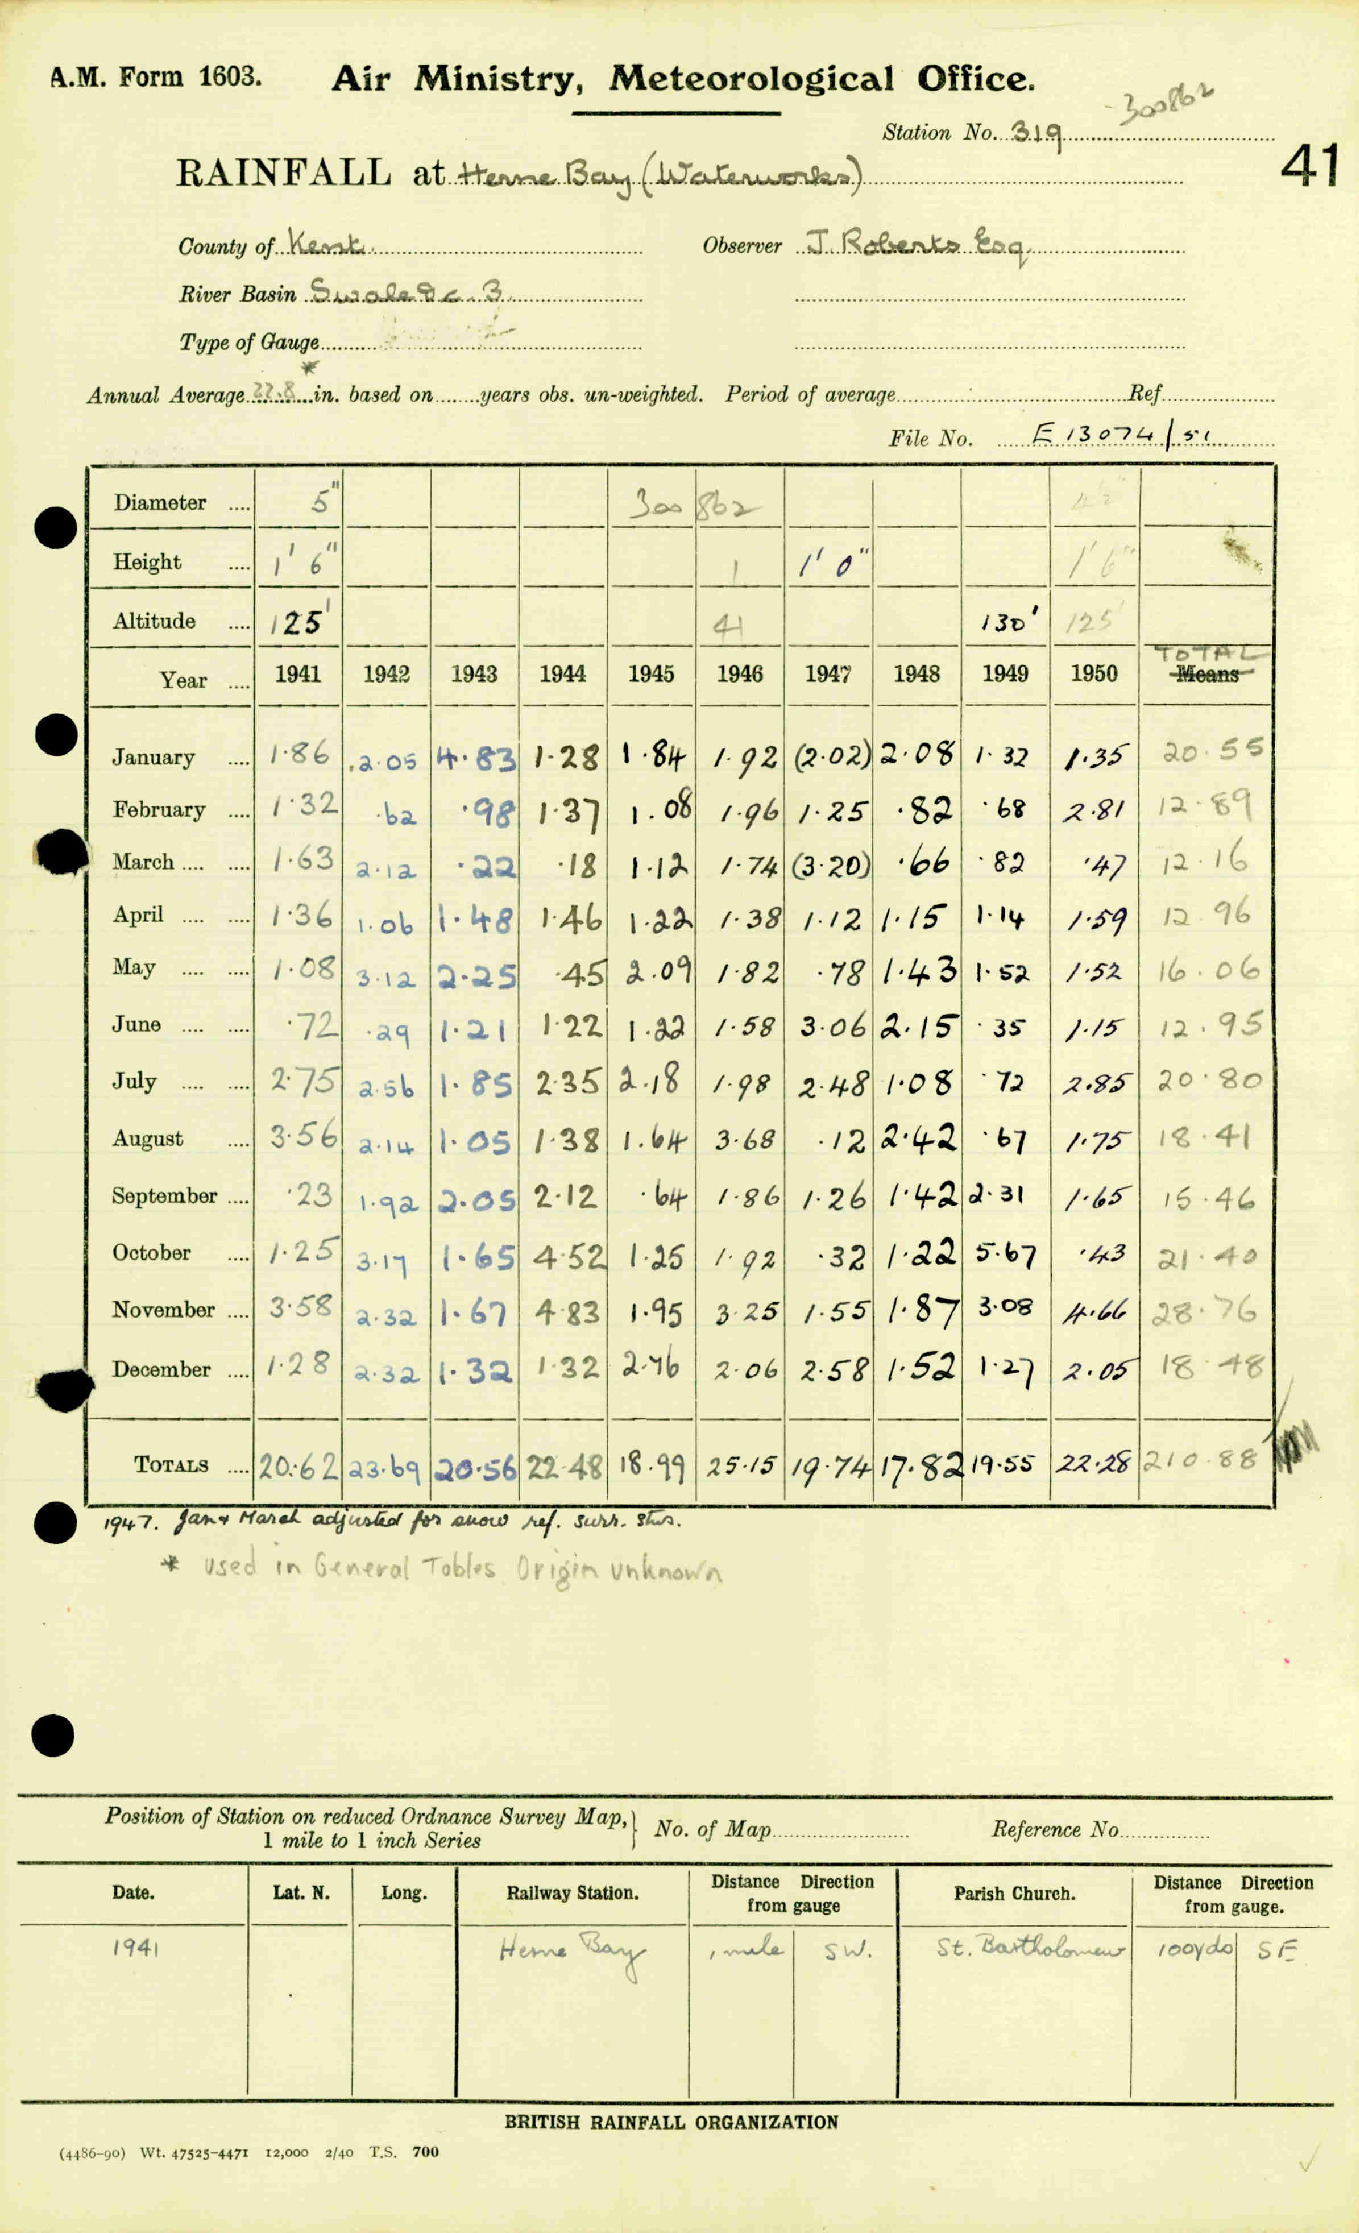 A.M. Form 1603. Air Ministry, Meteorological Office.
300862
Station No. 319
41
RAINFALL at Herne Bay (Waterworks)
County of Kent. Observer J. Roberts Esq.
River Basin Swale &c. 3.
Type of Gauge
*
Annual Average 22.8 in. based on years obs. un-weighted. Period of average Ref.
File No. E 13074/51
Diameter .... 5" 300862 4½"
Height .... 1' 6" 1 1' 0" 1' 6"
Altitude .... 125' 41 130' 125'
TOTAL
Year .... 1941 1942 1943 1944 1945 1946 1947 1948 1949 1950 Means
January .... 1.86 2.05 4.83 1.28 1.84 1.92 (2.02) 2.08 1.32 1.35 20.55
February .... 1.32 .62 .98 1.37 1.08 1.96 1.25 .82 .68 2.81 12.89
March .... .... 1.63 2.12 .22 .18 1.12 1.74 (3.20) .66 .82 .47 12.16
April .... .... 1.36 1.06 1.48 1.46 1.22 1.38 1.12 1.15 1.14 1.59 12.96
May .... .... 1.08 3.12 2.25 .45 2.09 1.82 .78 1.43 1.52 1.52 16.06
June .... .... .72 .29 1.21 1.22 1.22 1.58 3.06 2.15 .35 1.15 12.95
July .... .... 2.75 2.56 1.85 2.35 2.18 1.98 2.48 1.08 .72 2.85 20.80
August .... 3.56 2.14 1.05 1.38 1.64 3.68 .12 2.42 .67 1.75 18.41
September .... .23 1.92 2.05 2.12 .64 1.86 1.26 1.42 2.31 1.65 15.46
October .... 1.25 3.17 1.65 4.52 1.25 1.92 .32 1.22 5.67 .43 21.40
November .... 3.58 2.32 1.67 4.83 1.95 3.25 1.55 1.87 3.08 4.66 28.76
December .... 1.28 2.32 1.32 1.32 2.76 2.06 2.58 1.52 1.27 2.05 18.48
TOTALS .... 20.62 23.69 20.56 22.48 18.99 25.15 19.74 17.82 19.55 22.28 210.88
1947. Jan + March adjusted for snow ref. surr. stns.
* Used in General Tables Origin unknown
Position of Station on reduced Ordnance Survey Map,
1 mile to 1 inch Series
No. of Map Reference No.
Date. Lat. N. Long. Railway Station. Distance Direction from gauge Parish Church. Distance Direction from gauge.
1941 Herne Bay 1 mile SW. St. Bartholomew 100yds SE
BRITISH RAINFALL ORGANIZATION
(4486-90) Wt. 47525-4471 12,000 2/40 T.S. 700